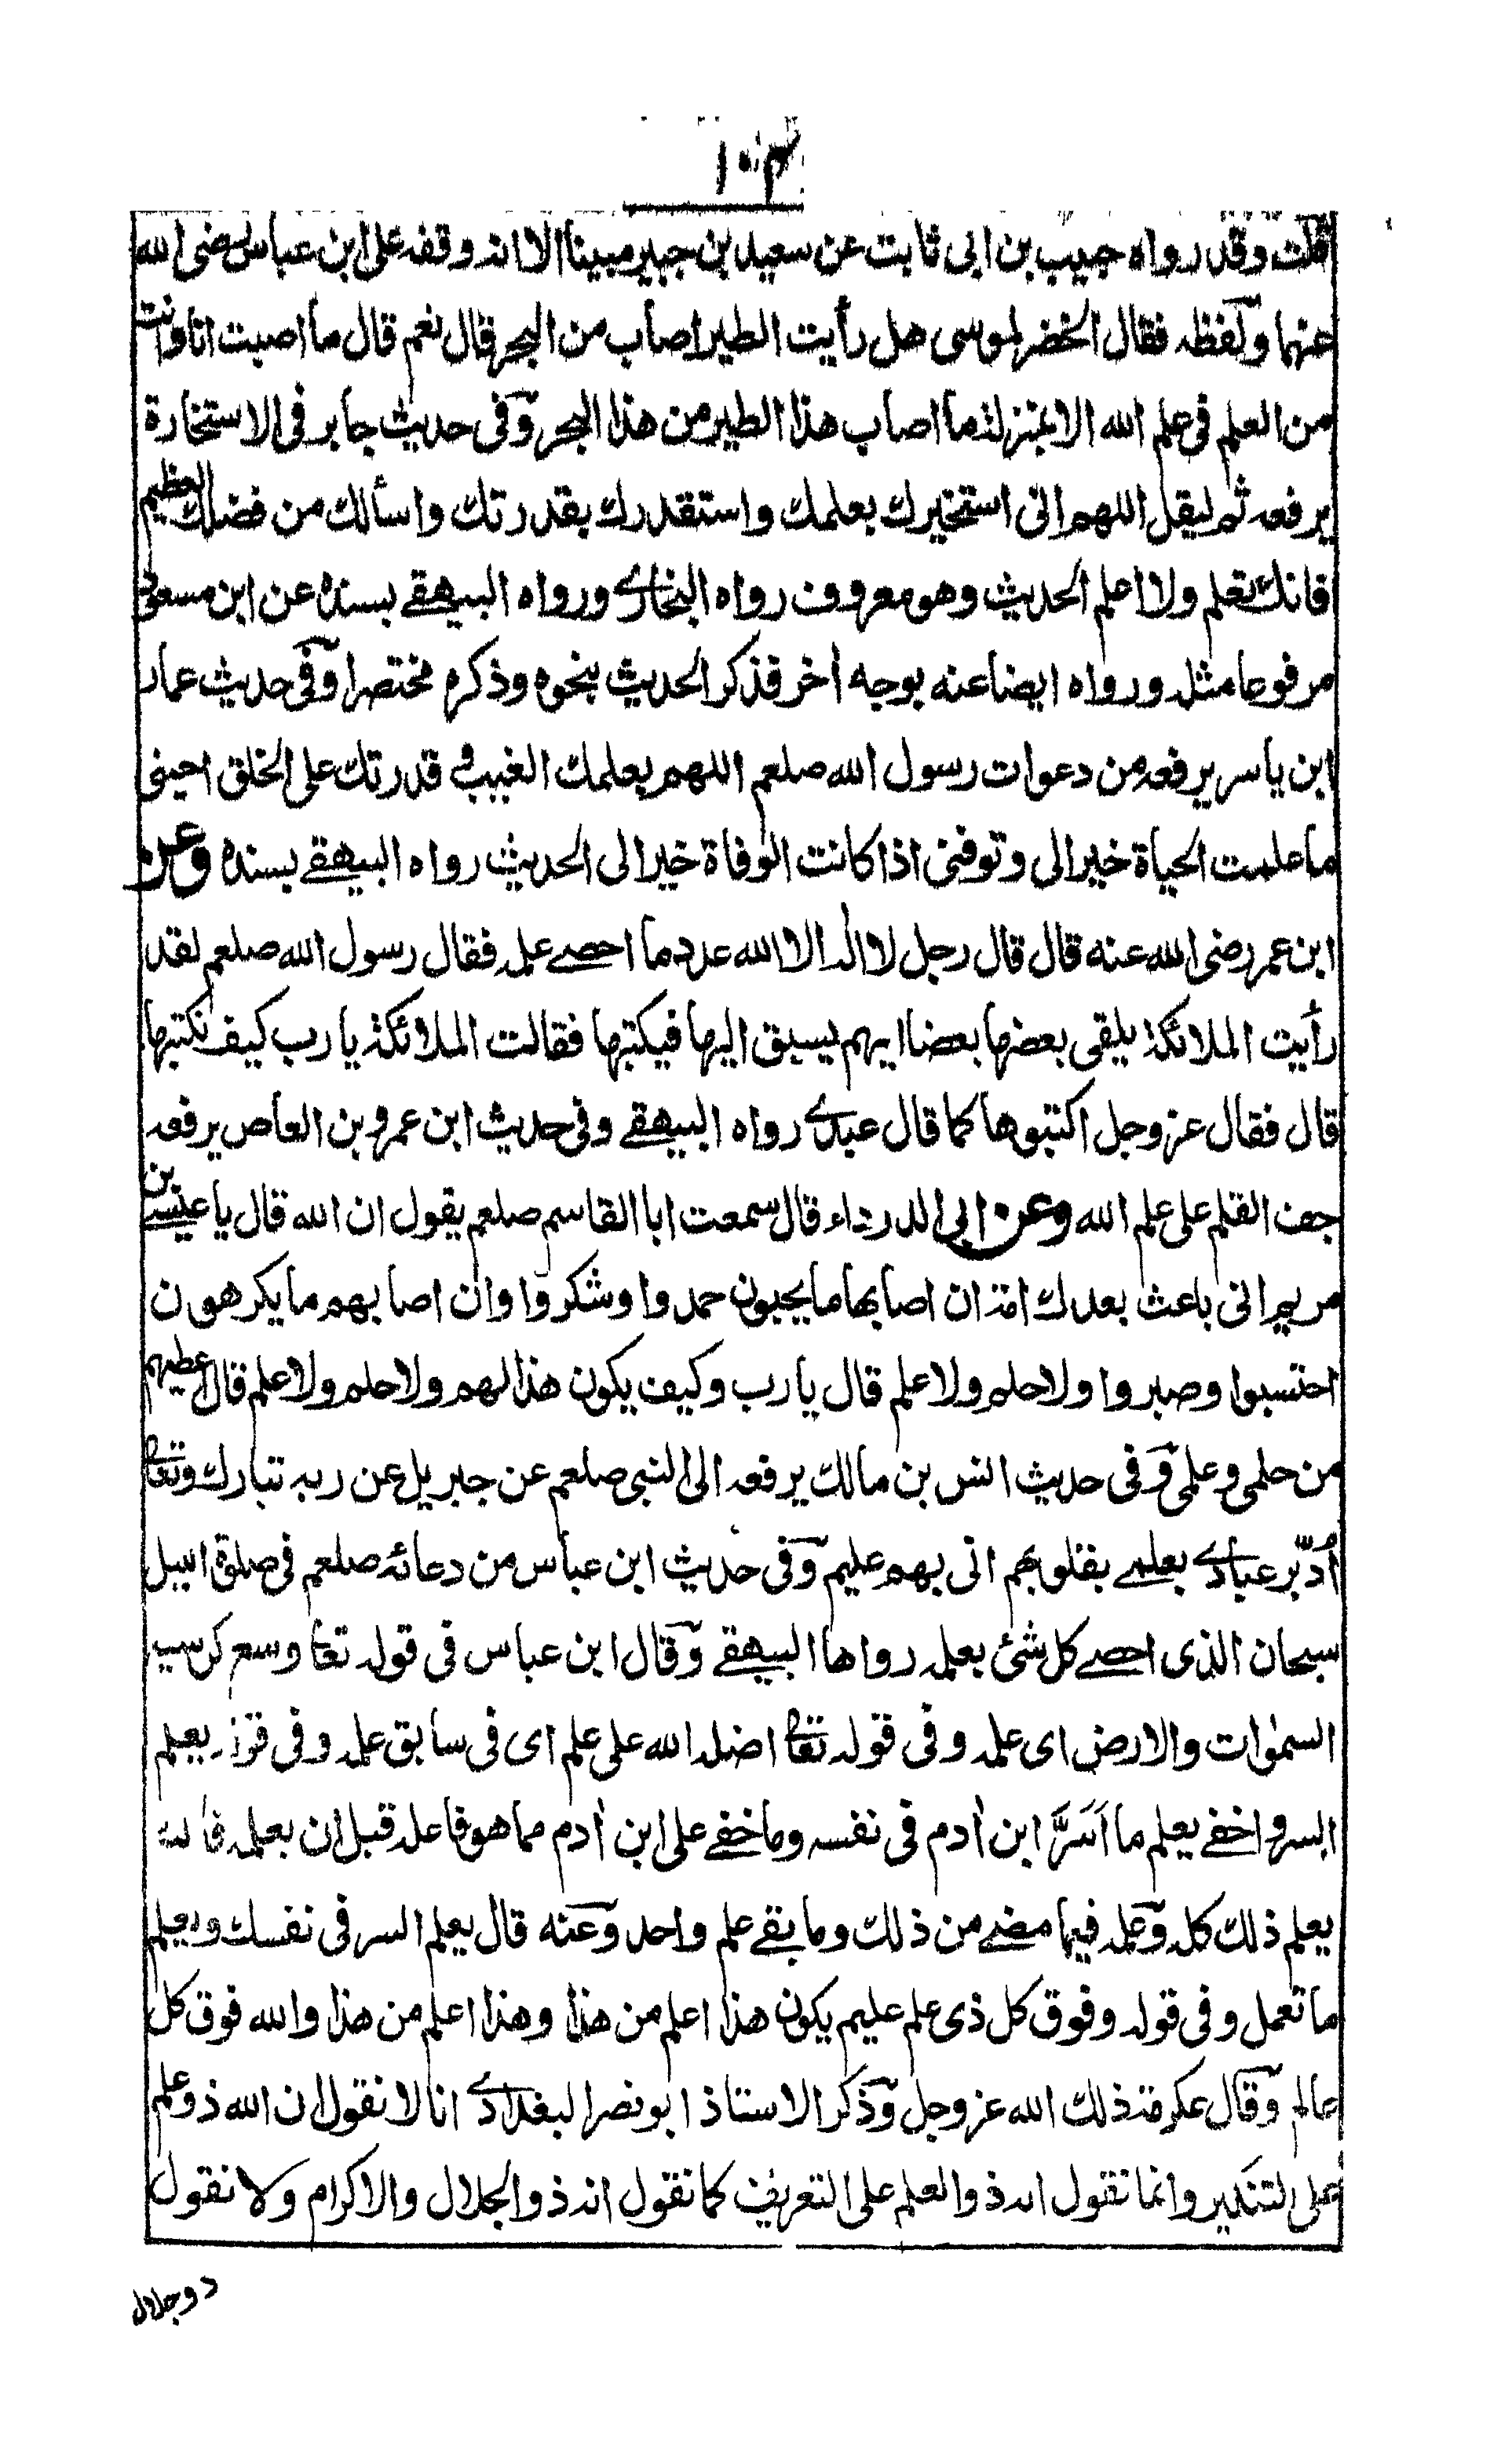 ١٠٣
قلت وقد رواه حبيب بن ابى ثابت عن سعيد بن جبير مبينا الا انه وقفه على ابن عباس رضى الله
عنهما ولفظه فقال الخضر لموسى هل رأيت الطير اصاب من البحر قال نعم قال ما اصبت انا وانت
من العلم فى علم الله الا بمنزلة ما اصاب هذا الطير من هذا البحر وفى حديث جابر فى الاستخارة
يرفعه ثم ليقل اللهم انى استخيرك بعلمك واستقدرك بقدرتك واسألك من فضلك العظيم
فانك تعلم ولا اعلم الحديث وهو معروف رواه البخارے ورواه البيهقے بسنده عن ابن مسعود
مرفوعا مثله ورواه ايضا عنه بوجه أخر فذكر الحديث بنحوه وذكره مختصرا وفى حديث عمار
ابن ياسر يرفعه من دعوات رسول الله صلعم اللهم بعلمك الغيب و قدرتك على الخلق احينى
ما علمت الحياة خيرا لى وتوفنى اذا كانت الوفاة خيرا لى الحديث رواه البيهقے بسنده وعن
ابن عمر رضى الله عنه قال قال رجل لا اله الا الله عدد ما احصے علمه فقال رسول الله صلعم لقد
رأيت الملائكة يلقى بعضها بعضا ايهم يسبق اليها فيكتبها فقالت الملائكة يا رب كيف نكتبها
قال فقال عز وجل اكتبوها كما قال عبدے رواه البيهقے وفى حديث ابن عمرو بن العاص يرفعه
جف القلم على علم الله وعن ابى الدرداء قال سمعت ابا القاسم صلعم يقول ان الله قال يا عيسے بن
مريم انى باعث بعدك امة ان اصابها ما يحبون حمدوا وشكروا وان اصابهم ما يكرهون
احتسبوا وصبروا ولا حلم ولا علم قال يا رب وكيف يكون هذا لهم ولا حلم ولا علم قال اعطيهم
من حلمى وعلمى وفى حديث انس بن مالك يرفعه الى النبى صلعم عن جبريل عن ربه تبارك وتعالى
أدبّر عبادے بعلمے بقلوبهم انى بهم عليم وفى حديث ابن عباس من دعائه صلعم فى صلوة الليل
سبحان الذى احصے كل شئ بعلمه رواها البيهقے وقال ابن عباس فى قوله تعالى وسع كرسيه
السمٰوات والارض اى علمه وفى قوله تعالى اضله الله على علم اى فى سابق علمه وفى قوله يعلم
السر واخفے يعلم ما اَسَرَّ ابن أدم فى نفسه وما خفے على ابن أدم مما هو فاعله قبل ان يعلمه فالله
يعلم ذلك كله وعلمه فيما مضے من ذلك وما بقے علم واحد وعنه قال يعلم السر فى نفسك ويعلم
ما تعمل وفى قوله وفوق كل ذى علم عليم يكون هذا اعلم من هذا وهذا اعلم من هذا والله فوق كل
عالم وقال عكرمة ذلك الله عز وجل وذكر الاستاذ ابو نصر البغدادے انا لا نقول ان الله ذو علم
على التنكير وانما نقول انه ذو العلم على التعريف كما نقول انه ذو الجلال والاكرام ولا نقول
ذو جلال